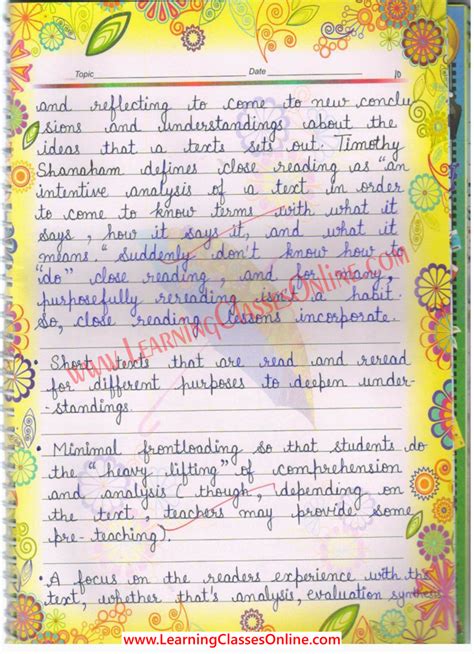 Topic Date 10
and reflecting to come to new conclu
sions and understandings about the
ideas that a texts sets out. Timothy
Shanaham defines close reading as "an
intentive analysis of a text in order
to come to know terms with what it
says, how it says it, and what it
means." Suddenly don't know how to
"do" close reading, and for many,
purposefully rereading isn't a habit.
So, close reading lessons incorporate.
www.LearningClassesOnline.com
• Short texts that are read and reread
for different purposes to deepen under-
standings.
• Minimal frontloading so that students do
the "heavy lifting" of comprehension
and analysis (though, depending on
the text, teachers may provide some
pre-teaching).
• A focus on the readers experience with the
text, whether that's analysis, evaluation synthesis
www.LearningClassesOnline.com